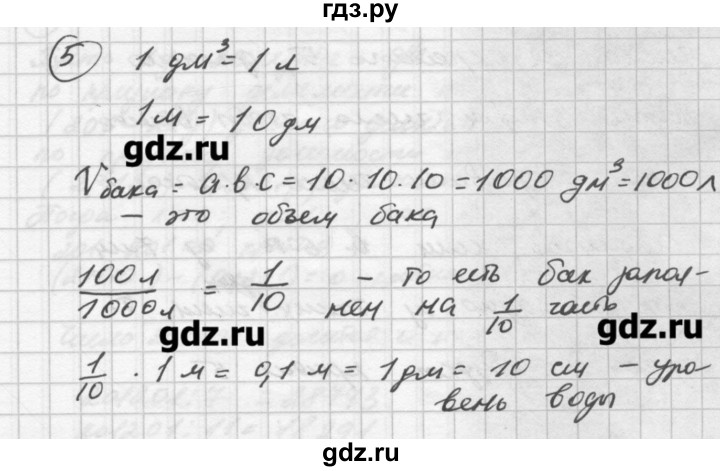 гдз.ру
5 1 дм³ = 1 л
1 м = 10 дм
gdz.ru
Vбака = a·b·c = 10·10·10 = 1000 дм³ = 1000 л
— это объем бака
100 л / 1000 л = 1/10 — то есть бак запол-
нен на 1/10 часть
gdz.ru gdz.ru
1/10 · 1 м = 0,1 м = 1 дм = 10 см — уро-
вень воды
gdz.ru